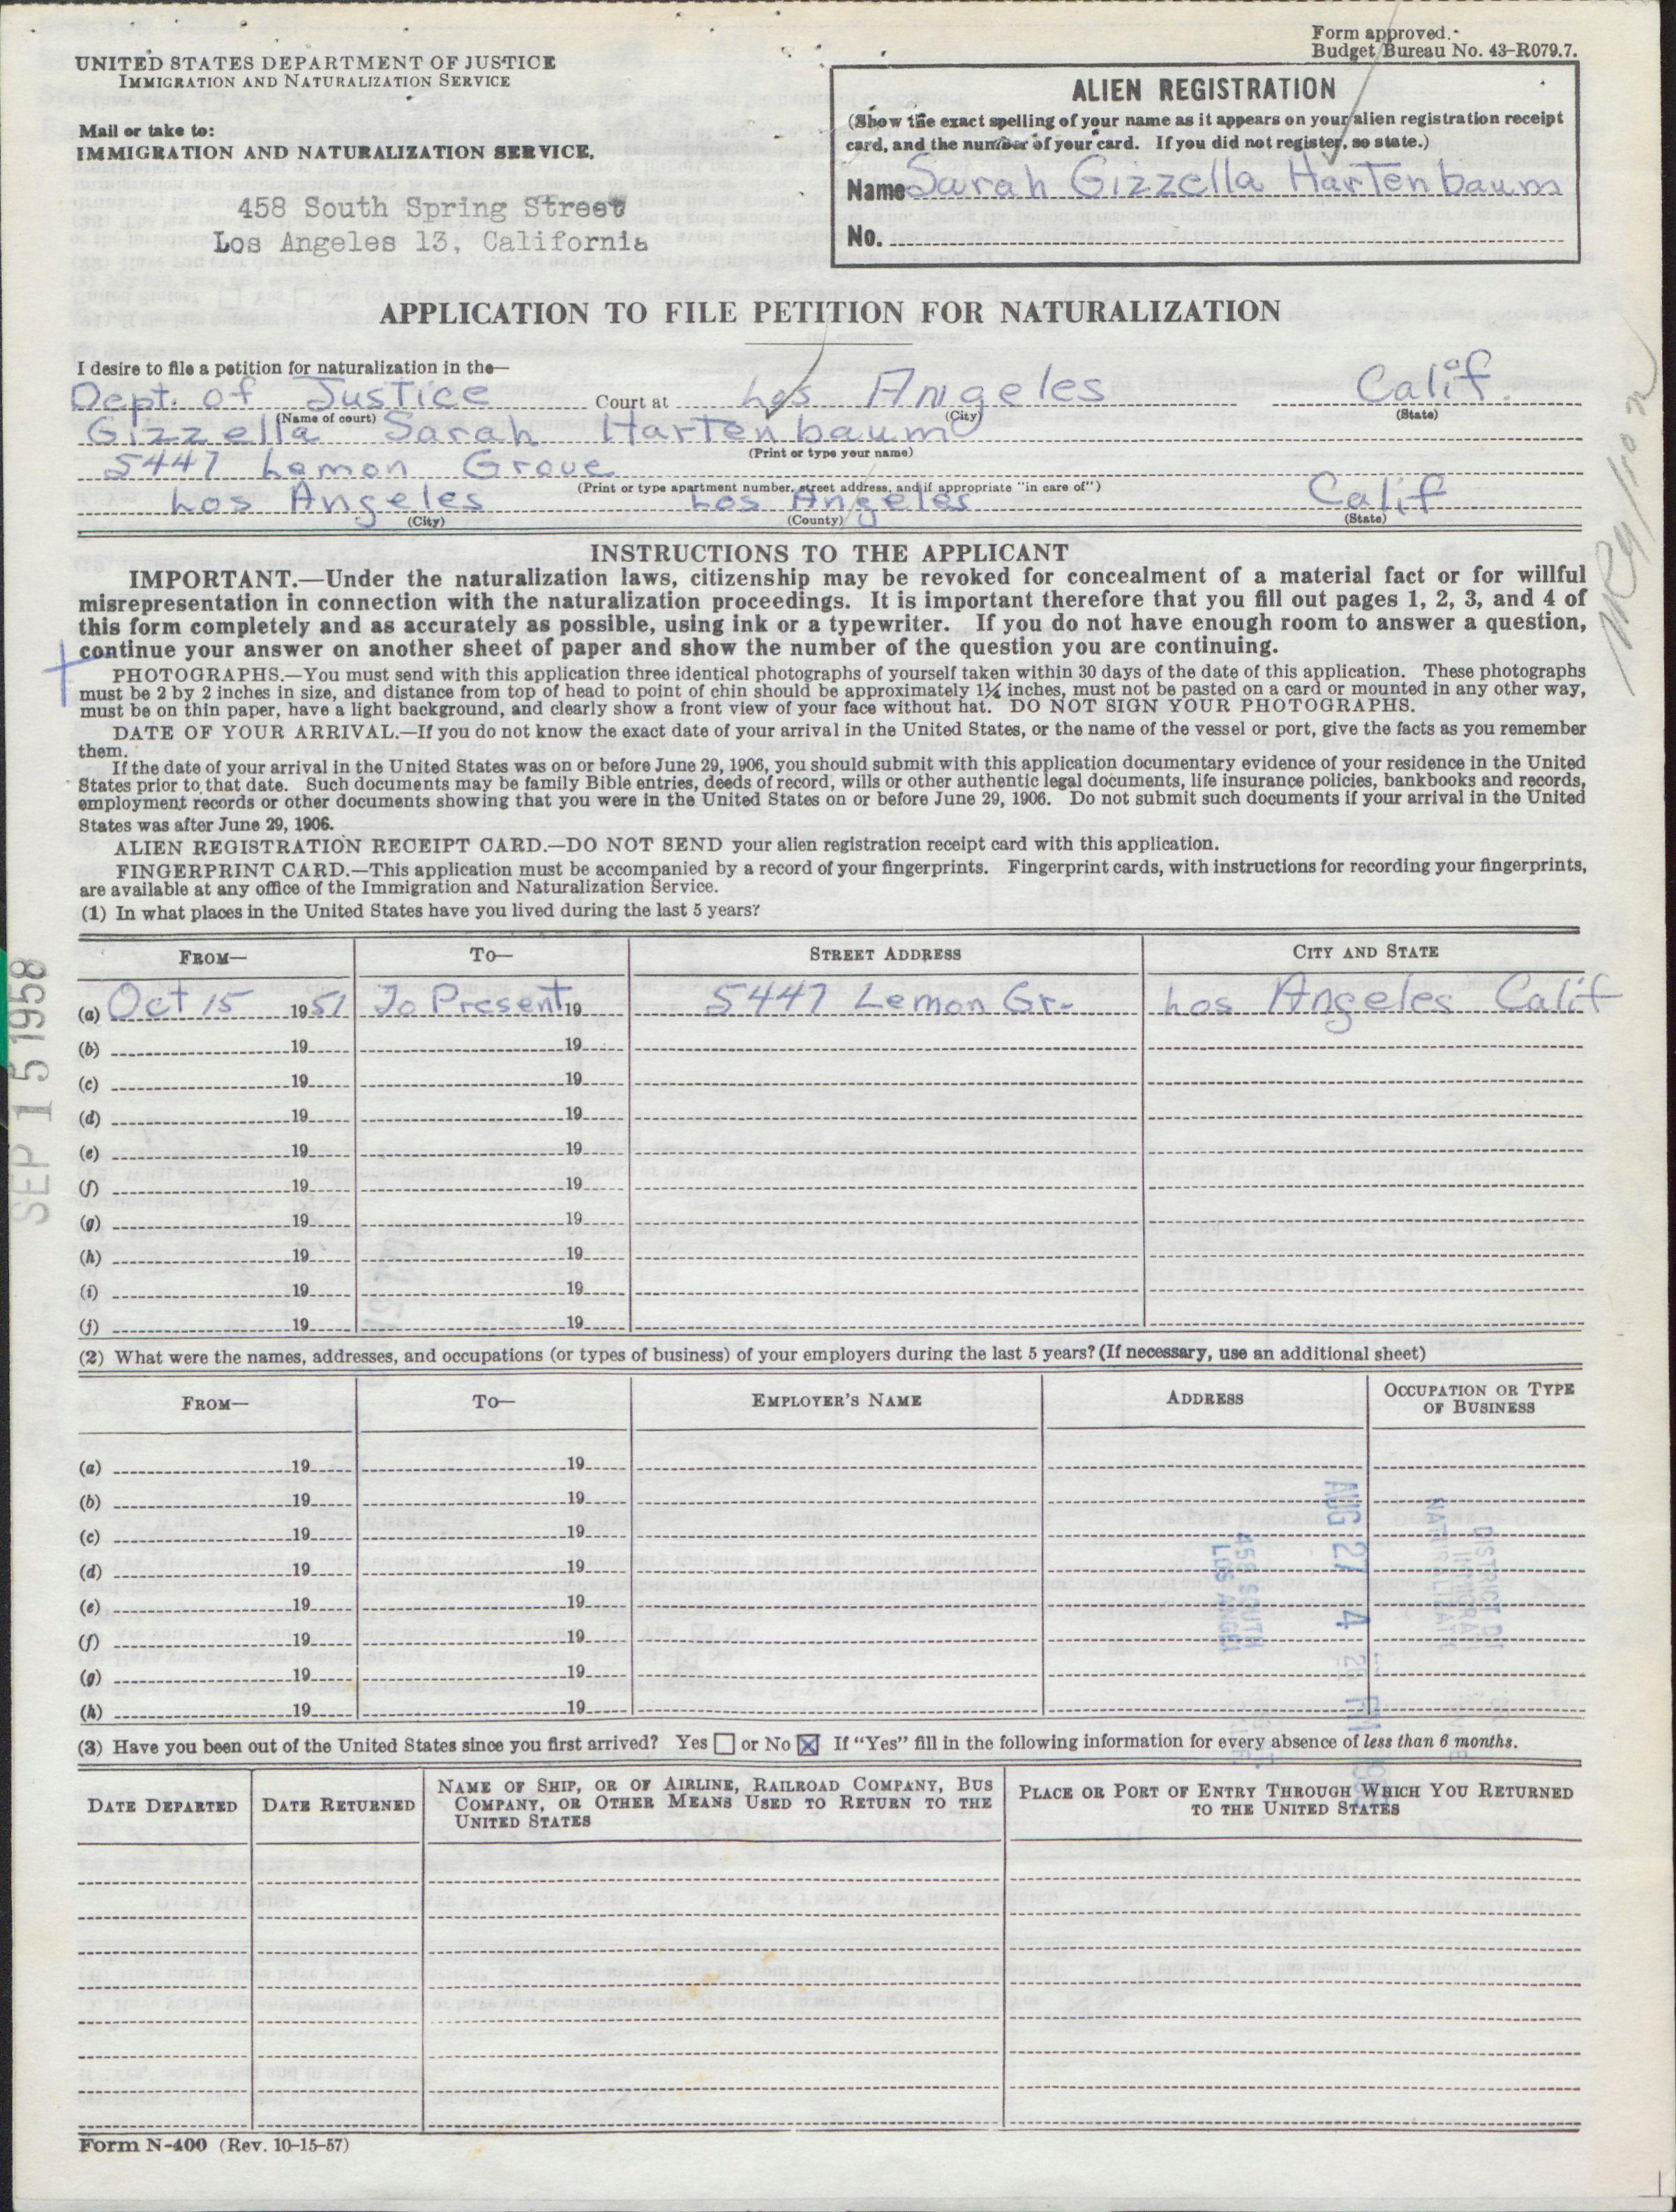 Form approved.
Budget Bureau No. 43-R079.7.
UNITED STATES DEPARTMENT OF JUSTICE
IMMIGRATION AND NATURALIZATION SERVICE
Mail or take to:
IMMIGRATION AND NATURALIZATION SERVICE,
458 South Spring Street
Los Angeles 13, California
ALIEN REGISTRATION
(Show the exact spelling of your name as it appears on your alien registration receipt
card, and the number of your card. If you did not register, so state.)
Name Sarah Gizzella Hartenbaum
No.
APPLICATION TO FILE PETITION FOR NATURALIZATION
I desire to file a petition for naturalization in the—
Dept. of Justice Court at Los Angeles Calif.
(Name of court) (City) (State)
Gizzella Sarah Hartenbaum
(Print or type your name)
5447 Lemon Grove
(Print or type apartment number, street address, and if appropriate "in care of")
Los Angeles Los Angeles Calif
(City) (County) (State)
INSTRUCTIONS TO THE APPLICANT
IMPORTANT.—Under the naturalization laws, citizenship may be revoked for concealment of a material fact or for willful
misrepresentation in connection with the naturalization proceedings. It is important therefore that you fill out pages 1, 2, 3, and 4 of
this form completely and as accurately as possible, using ink or a typewriter. If you do not have enough room to answer a question,
continue your answer on another sheet of paper and show the number of the question you are continuing.
PHOTOGRAPHS.—You must send with this application three identical photographs of yourself taken within 30 days of the date of this application. These photographs
must be 2 by 2 inches in size, and distance from top of head to point of chin should be approximately 1¼ inches, must not be pasted on a card or mounted in any other way,
must be on thin paper, have a light background, and clearly show a front view of your face without hat. DO NOT SIGN YOUR PHOTOGRAPHS.
DATE OF YOUR ARRIVAL.—If you do not know the exact date of your arrival in the United States, or the name of the vessel or port, give the facts as you remember
them.
If the date of your arrival in the United States was on or before June 29, 1906, you should submit with this application documentary evidence of your residence in the United
States prior to that date. Such documents may be family Bible entries, deeds of record, wills or other authentic legal documents, life insurance policies, bankbooks and records,
employment records or other documents showing that you were in the United States on or before June 29, 1906. Do not submit such documents if your arrival in the United
States was after June 29, 1906.
ALIEN REGISTRATION RECEIPT CARD.—DO NOT SEND your alien registration receipt card with this application.
FINGERPRINT CARD.—This application must be accompanied by a record of your fingerprints. Fingerprint cards, with instructions for recording your fingerprints,
are available at any office of the Immigration and Naturalization Service.
(1) In what places in the United States have you lived during the last 5 years?
FROM— TO— STREET ADDRESS CITY AND STATE
(a) Oct 15 1951 To Present 19 5447 Lemon Gr. Los Angeles Calif
(b) 19 19
(c) 19 19
(d) 19 19
(e) 19 19
(f) 19 19
(g) 19 19
(h) 19 19
(i) 19 19
(j) 19 19
SEP 15 1958
(2) What were the names, addresses, and occupations (or types of business) of your employers during the last 5 years? (If necessary, use an additional sheet)
FROM— TO— EMPLOYER'S NAME ADDRESS OCCUPATION OR TYPE
OF BUSINESS
(a) 19 19
(b) 19 19
(c) 19 19
(d) 19 19
(e) 19 19
(f) 19 19
(g) 19 19
(h) 19 19
AUG 27 4
458 SOUTH
(3) Have you been out of the United States since you first arrived? Yes or No If "Yes" fill in the following information for every absence of less than 6 months.
DATE DEPARTED DATE RETURNED NAME OF SHIP, OR OF AIRLINE, RAILROAD COMPANY, BUS
COMPANY, OR OTHER MEANS USED TO RETURN TO THE
UNITED STATES
PLACE OR PORT OF ENTRY THROUGH WHICH YOU RETURNED
TO THE UNITED STATES
Form N-400 (Rev. 10-15-57)